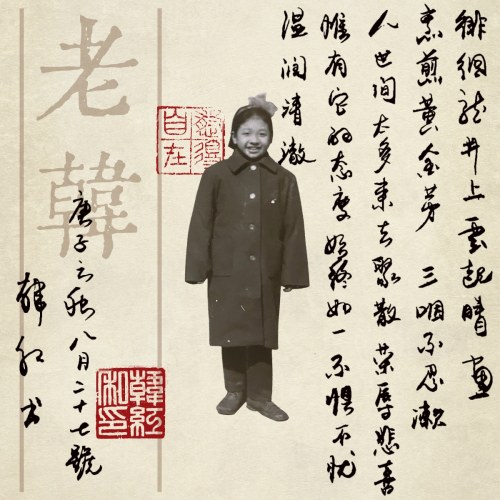 徘徊龙井上雲起晴画
烹煎黄金芽 三咽不忍漱
人世间太多来去聚散 荣辱悲喜
唯有它的态度始终如一 不惧不忧
温润清澈
自在
老韓
庚子之秋八月二十七號
韩红书
韓紅私印